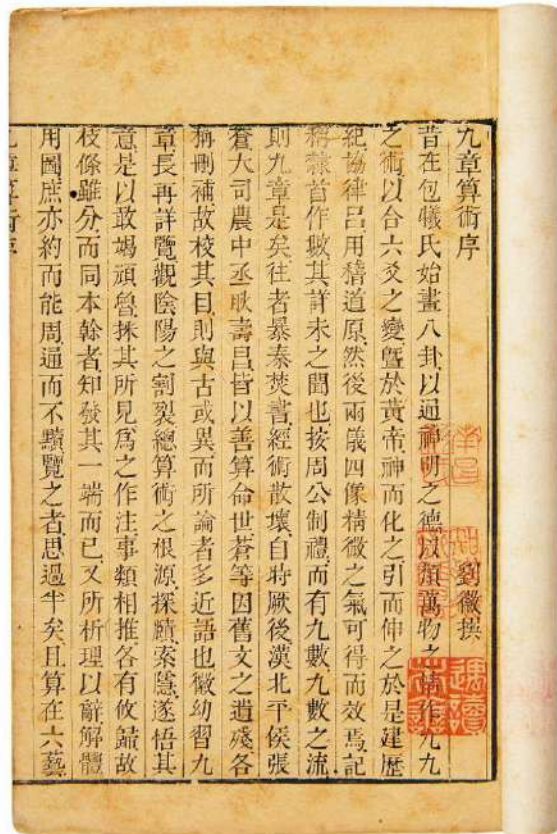 九章算術序
劉徽撰
昔在包犧氏始畫八卦以通神明之德以類萬物之情作九九
之術以合六爻之變曁於黃帝神而化之引而伸之於是建歷
紀協律呂用稽道原然後兩儀四像精微之氣可得而效焉記
稱隸首作數其詳未之聞也按周公制禮而有九數九數之流
則九章是矣往者暴秦焚書經術散壞自時厥後漢北平侯張
蒼大司農中丞耿壽昌皆以善算命世蒼等因舊文之遺殘各
稱刪補故校其目則與古或異而所論者多近語也徽幼習九
章長再詳覽觀陰陽之割裂總算術之根源探賾索隱遂悟其
意是以敢竭頑魯採其所見爲之作注事類相推各有攸歸故
枝條雖分而同本榦者知發其一端而已又所析理以辭解體
用圖庶亦約而能周通而不黷覽之者思過半矣且算在六藝
九章算術序